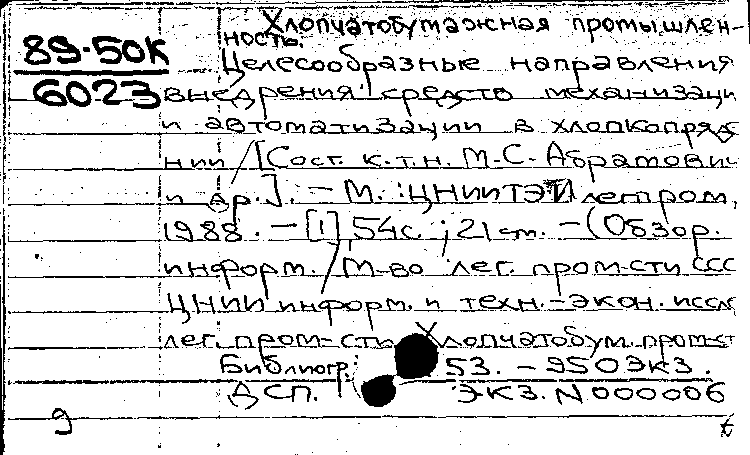 Хлопчатобумажная промышлен-
ность.
89-50К
6023
Целесообразные направления
внедрения средств механизаци
и автоматизации в хлопкопряде
нии / [Сост. к.т.н. М.С. Абрамович
и др.]. - М. : ЦНИИТЭИлегпром,
1988. - [1], 54с. ; 21 см. - (Обзор.
информ. / М-во лег. пром-сти ССС
ЦНИИ информ. и техн.-экон. иссл
лег. пром-сти. Хлопчатобум. пром-ст
Библиогр.: 53. - 950 экз.
ДСП. экз. N 000006
9